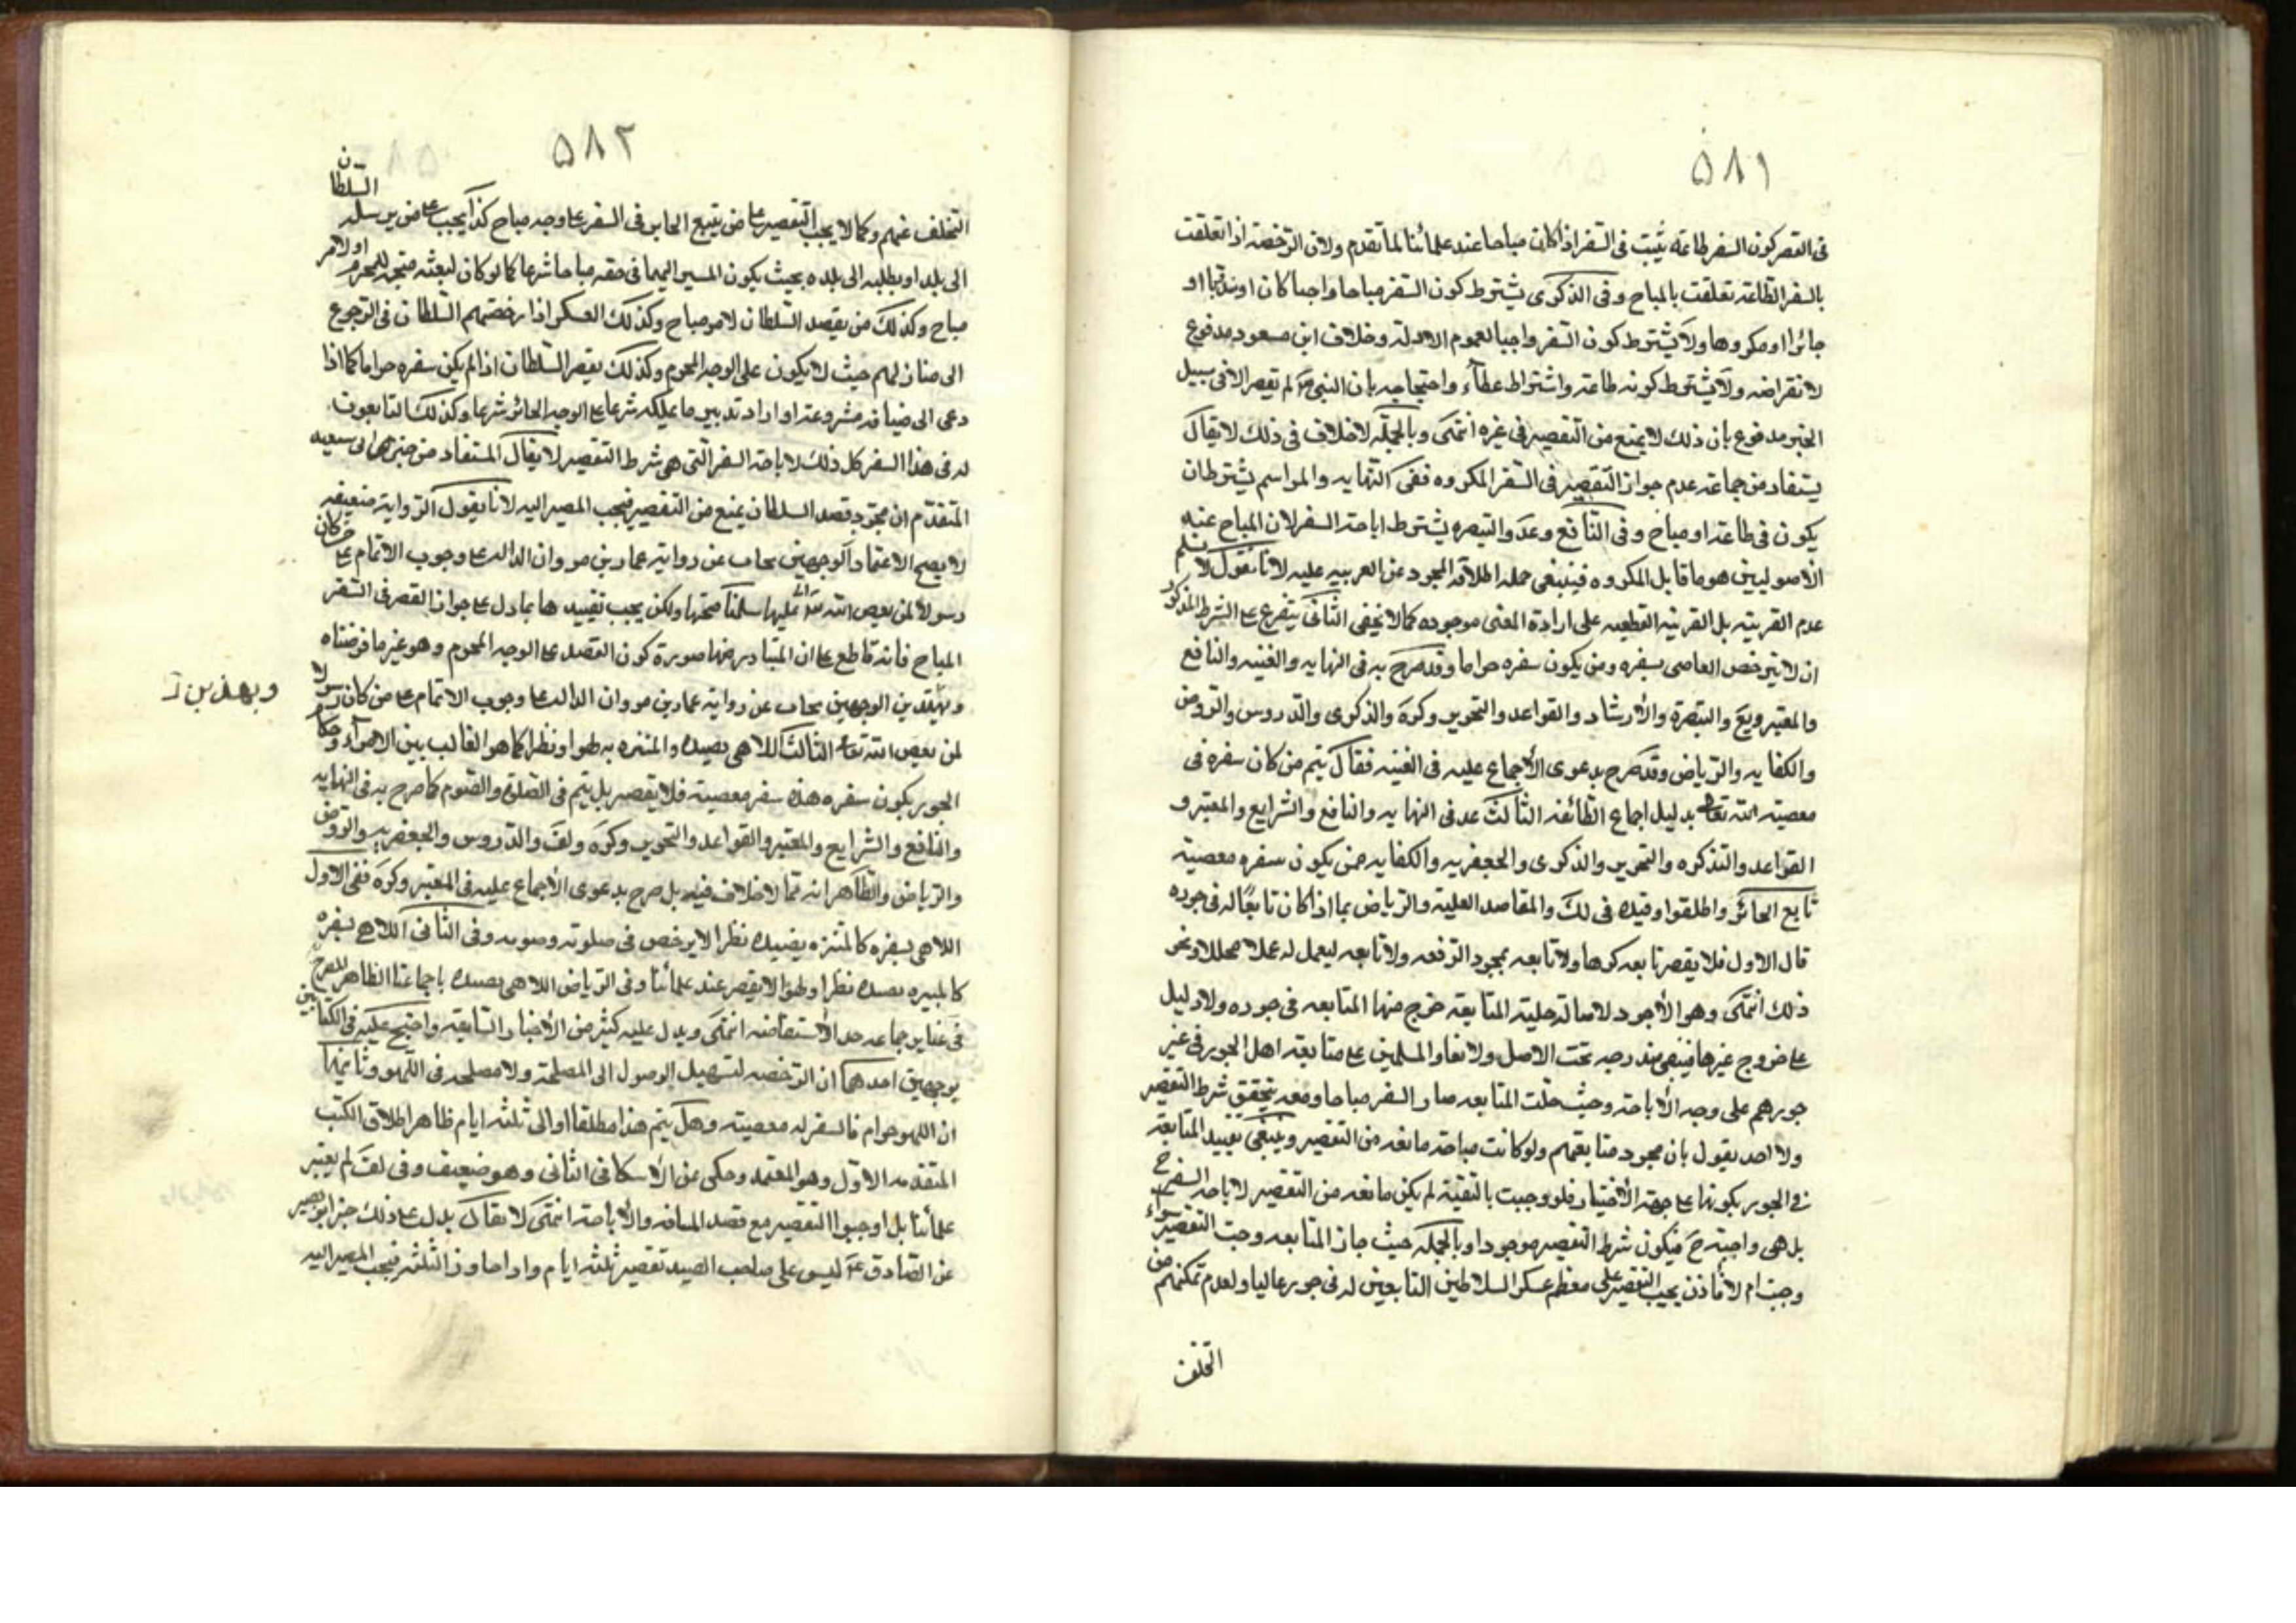 ٥٨١
فى القصر كون السفر طاعة يثبت فى السفر اذا كان مباحا عند علمائنا لما تقدم ولان الرخصة اذا تعلقت
بالسفر الطاعة تعلقت بالمباح وفى الذكرى يشترط كون السفر مباحا واجبا كان او ندبا او
جائزا او مكروها ولا يشترط كون السفر واجبا لعموم الادلة وخلاف ابن مسعود مدفوع
لانقراضه ولا يشترط كونه طاعة واشتراط عطاء واحتجاجه بان النبى ص لم يقصر الا فى سبيل
الخير مدفوع بان ذلك لا يمنع من التقصير فى غيره انتهى وبالجملة لا خلاف فى ذلك لا يقال
يستفاد من جماعة عدم جواز التقصير فى السفر المكروه ففى النهايه والمراسم يشترط ان
يكون فى طاعة او مباح وفى النافع وعد والتبصره يشترط اباحة السفر لان المباح عند
الاصوليين هو ما قابل المكروه فينبغى حمله اطلاقه المجرد عن القرينه عليه لانا نقول لا نسلم
عدم القرينة بل القرينه القطعيه على ارادة المعنى موجوده كما لا يخفى الثانى يتفرع على الشرط المذكور
ان لا يترخص العاصى بسفره ومن يكون سفره حراما وقد صرح به فى النهايه والغنيه والنافع
والمعتبر ويع والتبصرة والارشاد والقواعد والتحرير وكره والذكرى والدروس والروض
والكفايه والرياض وقد صرح بدعوى الاجماع عليه فى الغنيه فقال يتم من كان سفره فى
معصية الله تعالى بدليل اجماع الطائفه الثالث عد فى النهايه والنافع والشرايع والمعتبر و
القواعد والتذكره والتحرير والذكرى والجعفريه والكفايه ممن يكون سفره معصية
تابع الجائر واطلقوا وقيده فى لك والمقاصد العلية والرياض بما اذا كان تابعا له فى جوره
قال الاول فلا يقصر تابعه كرها ولا تابعه بمجرد الرفعه ولا تابعه ليعمل له عملا محللا ونحو
ذلك انتهى وهو الاجود لاصالة حلية المتابعة خرج منها المتابعه فى جوره ولا دليل
على خروج غيرها فيبقى مندرجه تحت الاصل ولاتفاق المسلمين على متابعة اهل الجور فى غير
جورهم على وجه الاباحة وحيث حلت المتابعه صار السفر مباحا ومعه يتحقق شرط التقصير
ولا احد يقول بان مجرد متابعتهم ولو كانت مباحة مانعه من التقصير وينبغى تقييد المتابعة
فى الجور بكونها على جهة الاختيار فلو وجبت بالتقية لم يكن مانعه من التقصير لاباحة السفر ح
بل هى واجبة ح فيكون شرط التقصير موجودا وبالجمله حيث جاز المتابعه وجب التقصير سواء
وجبت ام لا فاذن يجب التقصير على معظم عسكر السلاطين التابعين له فى جوره غالبا ولعدم تمكنهم من
التخلف
٥٨٢
التخلف عنهم وكما لا يجب التقصير على من يتبع الجابر فى السفر على وجه مباح كذا يجب على من يرسله السلطان
الى بلد او يطلبه الى بلده بحيث يكون المسير اليهما فى حقه مباحا شرعا كما لو كان لبعثه متجه للمحرم او لامر
مباح وكذلك من يقصد السلطان لامر مباح وكذلك العسكر اذا رخصهم السلطان فى الرجوع
الى منازلهم حيث لا يكون على الوجه المحرم وكذلك يقصر السلطان اذا لم يكن سفره حراما كما اذا
دعى الى ضيافة مشروعة او اراد تدبير ما يملكه شرعا على الوجه الجائز شرعا وكذلك التابعون
له فى هذا السفر كل ذلك لاباحة السفر التى هى شرط التقصير لا يقال المستفاد من خبر ابى سعيد
المتقدم ان مجرد قصد السلطان يمنع من التقصير فيجب المصير اليه لانا نقول الرواية ضعيفه
لا يصح الاعتماد الوجهين يجاب عن رواية عمار بن مروان الداله على وجوب الاتمام على من كان
رسولا لمن يعصى الله عليها سلمنا صحتها ولكن يجب تقييدها بما دل على جواز القصر فى السفر
المباح فانه قاطع على ان المتبادر منها صورة كون القصد على الوجه المحرم وهو غير ما فرضناه
وبهذين الوجهين يجاب عن رواية عمار بن مروان الداله على وجوب الاتمام على من كان رسولا
لمن يعصى الله تعالى الثالث اللاهى بصيده والمتنزه به طوا ونظرا كما هو الغالب بين الامراء وحكام
الجور يكون سفره هذه سفر معصية فلا يقصر بل يتم فى الصلوة والصوم كما صرح به فى النهايه
والنافع والشرايع والمعتبر والقواعد والتحرير وكره ولف والدروس والجعفريه والروض
والرياض والظاهر انه مما لا خلاف فيه بل صرح بدعوى الاجماع عليه فى المعتبر وكره ففى الاول
اللاهى بسفره كالمتنزه بصيده نظرا لا يرخص فى صلوته وصومه وفى الثانى اللاهى بسفره
بصيده نظرا ولهوا لا يقصر عند علمائنا وفى الرياض اللاهى بصيده باجماعنا الظاهر المصرح
فى عباير جماعه حد الاستفاضه انتهى ويدل عليه كثير من الاخبار السابقة واحتج عليه فى الكتابين
بوجهين احدهما ان الرخصه لتسهيل الوصول الى المصلحة ولا مصلحه فى اللهو وثانيهما
ان اللهو حرام فالسفر له معصية وهل يتم هذا مطلقا او الى ثلثه ايام ظاهر اطلاق الكتب
المتقدمه الاول وهو المعتمد وحكى عن الاسكافى الثانى وهو ضعيف وفى لف لم يعتبر
علمائنا بل اوجبوا التقصير مع قصد المسافه والاباحة انتهى لا يقال يدل على ذلك خبر ابى بصير
عن الصادق ع ليس على صاحب الصيد تقصير ثلثه ايام واذا جاوز الثلثه فيجب المصير اليه